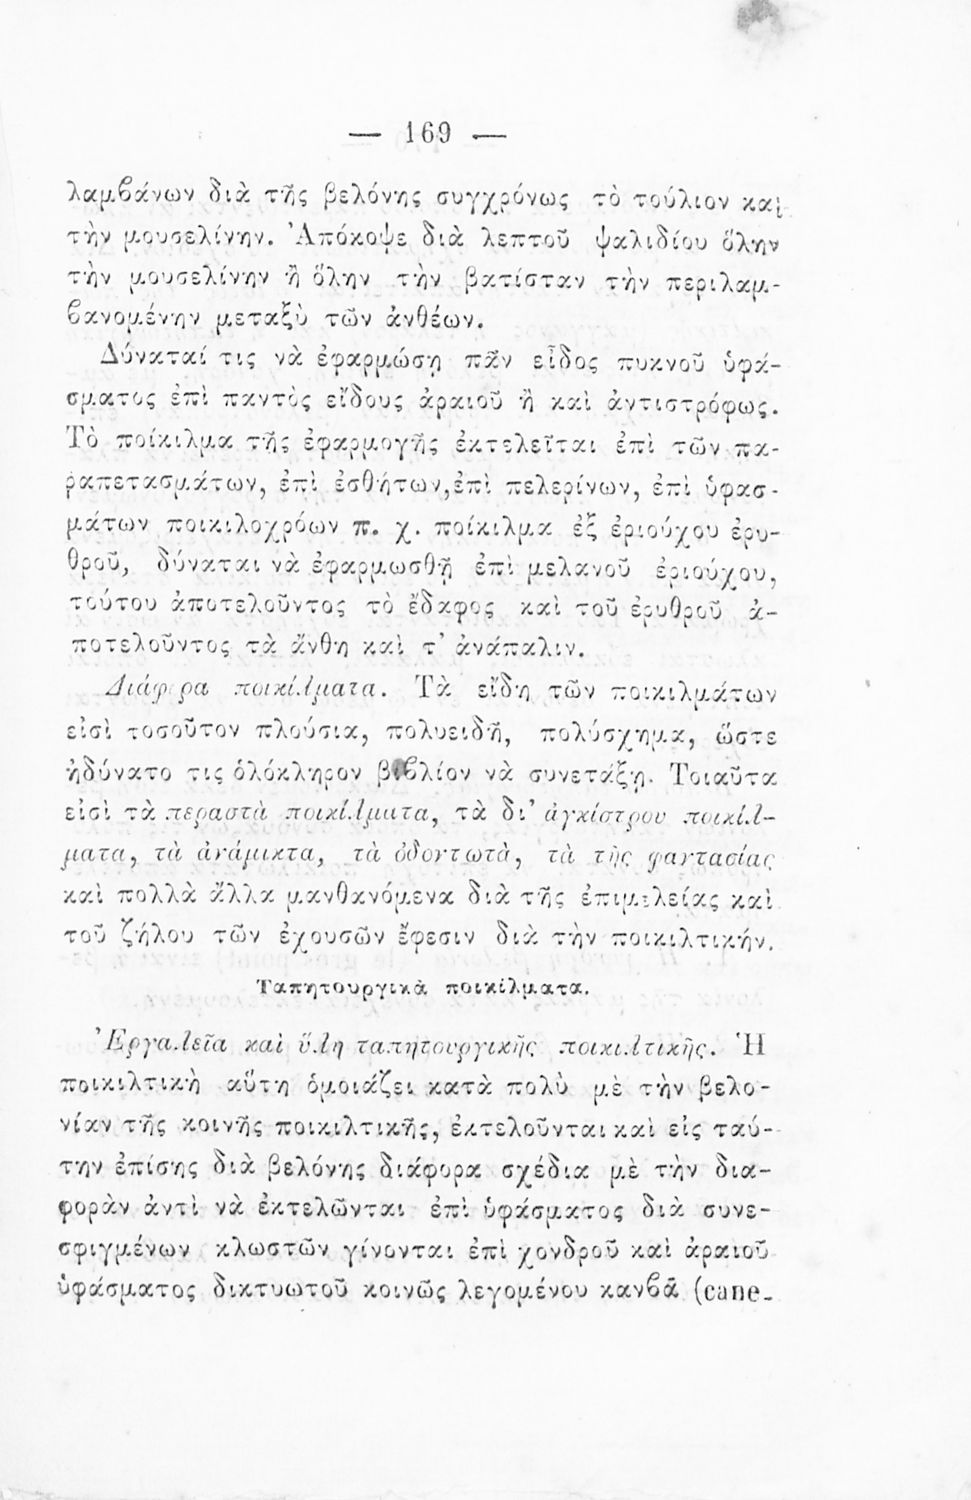 — 169 —
λαμβάνων διὰ τῆς βελόνης συγχρόνως τὸ τούλιον καὶ
τὴν μουσελίνην. Ἀπόκοψε διὰ λεπτοῦ ψαλιδίου ὅλην
τὴν μουσελίνην ἢ ὅλην τὴν βατίσταν τὴν περιλαμ-
βανομένην μεταξὺ τῶν ἀνθέων.
Δύναταί τις νὰ ἐφαρμώσῃ πᾶν εἶδος πυκνοῦ ὑφά-
σματος ἐπὶ παντὸς εἴδους ἀραιοῦ ἢ καὶ ἀντιστρόφως.
Τὸ ποίκιλμα τῆς ἐφαρμογῆς ἐκτελεῖται ἐπὶ τῶν πα-
ραπετασμάτων, ἐπὶ ἐσθήτων,ἐπὶ πελερίνων, ἐπὶ ὑφασ-
μάτων ποικιλοχρόων π. χ. ποίκιλμα ἐξ ἐριούχου ἐρυ-
θροῦ, δύναται νὰ ἐφαρμωσθῇ ἐπὶ μελανοῦ ἐριούχου,
τούτου ἀποτελοῦντος τὸ ἔδαφος καὶ τοῦ ἐρυθροῦ ἀ-
ποτελοῦντος τὰ ἄνθη καὶ τ' ἀνάπαλιν.
Διάφορα ποικίλματα. Τὰ εἴδη τῶν ποικιλμάτων
εἰσὶ τοσοῦτον πλούσια, πολυειδῆ, πολύσχημα, ὥστε
ἠδύνατο τις ὁλόκληρον βιβλίον νὰ συνετάξῃ. Τοιαῦτα
εἰσὶ τὰ περαστὰ ποικίλματα, τὰ δι' ἀγκίστρου ποικίλ-
ματα, τὰ ἀνάμικτα, τὰ ὀδοντωτὰ, τὰ τῆς φαντασίας
καὶ πολλὰ ἄλλα μανθανόμενα διὰ τῆς ἐπιμελείας καὶ
τοῦ ζήλου τῶν ἐχουσῶν ἔφεσιν διὰ τὴν ποικιλτικήν.
Ταπητουργικὰ ποικίλματα.
Ἐργαλεῖα καὶ ὕλη ταπητουργικῆς ποικιλτικῆς. Ἡ
ποικιλτικὴ αὕτη ὁμοιάζει κατὰ πολὺ μὲ τὴν βελο-
νίαν τῆς κοινῆς ποικιλτικῆς, ἐκτελοῦνται καὶ εἰς ταύ-
την ἐπίσης διὰ βελόνης διάφορα σχέδια μὲ τὴν δια-
φορὰν ἀντὶ νὰ ἐκτελῶνται ἐπὶ ὑφάσματος διὰ συνε-
σφιγμένων κλωστῶν γίνονται ἐπὶ χονδροῦ καὶ ἀραιοῦ
ὑφάσματος δικτυωτοῦ κοινῶς λεγομένου κανβᾶ (cane-